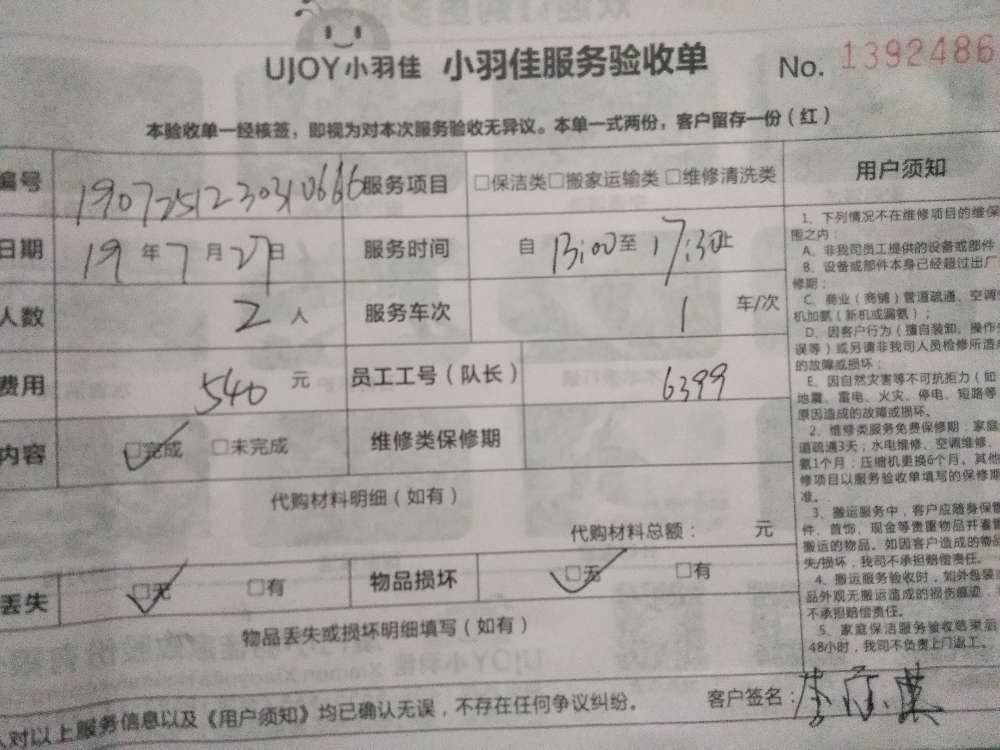 UJOY小羽佳 小羽佳服务验收单 No. 1392486
本验收单一经核签，即视为对本次服务验收无异议。本单一式两份，客户留存一份（红）
编号 1907251230310666 服务项目 □保洁类□搬家运输类 □维修清洗类
日期 19年7月27日 服务时间 自13:00至17:30止
人数 2人 服务车次 1 车/次
费用 540元 员工工号（队长） 6399
内容 ☑完成 □未完成 维修类保修期
代购材料明细（如有）
代购材料总额： 元
丢失 ☑无 □有 物品损坏 ☑无 □有
物品丢失或损坏明细填写（如有）
人对以上服务信息以及《用户须知》均已确认无误，不存在任何争议纠纷。
客户签名：李
用户须知
1、下列情况不在维修项目的维保
围之内：
A、非我司员工提供的设备或部件
B、设备或部件本身已经超过出厂
修期；
C、商业（商铺）管道疏通、空调
机加氨（新机或漏氨）；
D、因客户行为（擅自装卸、操作
误等）或另请非我司人员检修所造
的故障或损坏；
E、因自然灾害等不可抗拒力（如
地震、雷电、火灾、停电、短路等
原因造成的故障或损坏。
2、维修类服务免费保修期：家庭
道疏通3天；水电维修、空调维修、
氨1个月；压缩机更换6个月。其他
修项目以服务验收单填写的保修期
准。
3、搬运服务中，客户应随身保管
件、首饰、现金等贵重物品并看管
搬运的物品。如因客户造成的物品
失/损坏，我司不承担赔偿责任。
4、搬运服务验收时，如外包装
品外观无搬运造成的损伤痕迹，
不承担赔偿责任。
5、家庭保洁服务验收结束后
48小时，我司不负责上门返工。